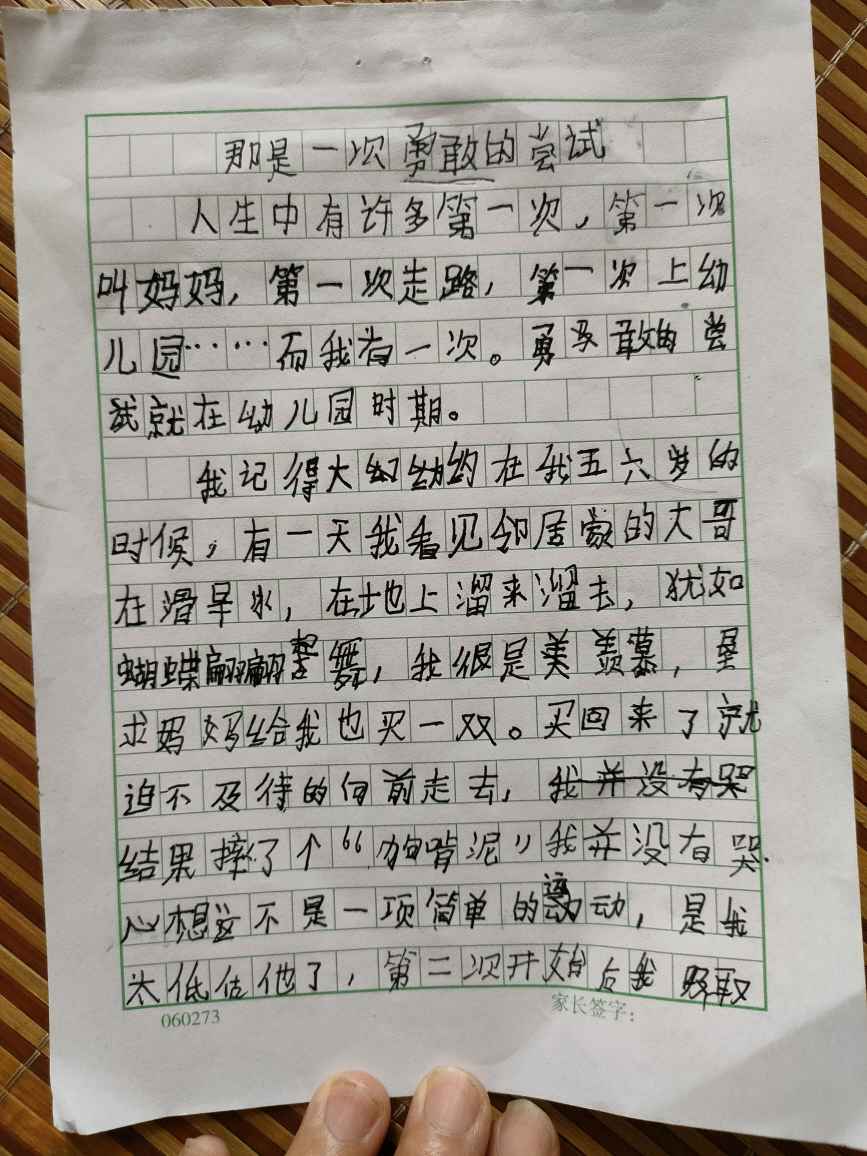 那是一次勇敢的尝试
人生中有许多第一次，第一次
叫妈妈，第一次走路，第一次上幼
儿园……而我有一次。勇敢的尝
试就在幼儿园时期。
我记得大约在我五六岁的
时候，有一天我看见邻居家的大哥
在滑旱冰，在地上溜来溜去，犹如
蝴蝶翩翩起舞，我很是羡慕，
求妈妈给我也买一双。买回来了就
迫不及待的向前走去，我并没有哭
结果摔了个“狗啃泥”我并没有哭.
心想这不是一项简单的运动，是我
太低估他了，第二次开始后我吸取
060273
家长签字：